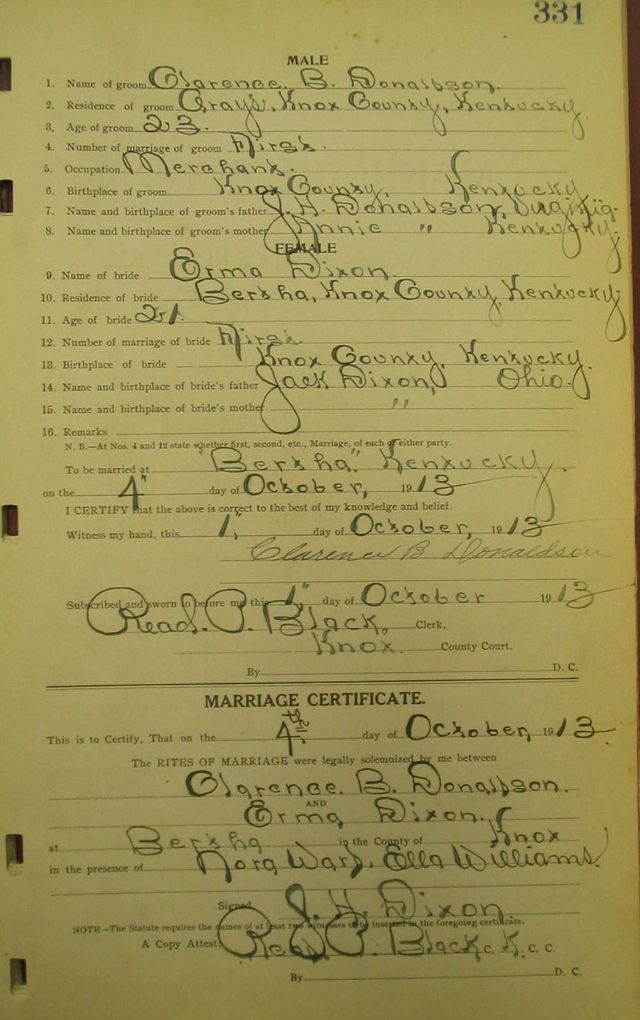 331
MALE
1. Name of groom Clarence. B. Donaldson.
2. Residence of groom Grays, Knox County, Kentucky.
3. Age of groom 23.
4. Number of marriage of groom First.
5. Occupation Merchant.
6. Birthplace of groom Knox County, Kentucky
7. Name and birthplace of groom's father J. H. Donaldson, Virginia.
8. Name and birthplace of groom's mother Annie " Kentucky.
FEMALE
9. Name of bride Erma Dixon.
10. Residence of bride Bertha, Knox County, Kentucky
11. Age of bride 21.
12. Number of marriage of bride First.
13. Birthplace of bride Knox County, Kentucky.
14. Name and birthplace of bride's father Jack Dixon, Ohio.
15. Name and birthplace of bride's mother "
16. Remarks
N. B.—At Nos. 4 and 12 state whether first, second, etc., Marriage, of each of either party.
To be married at "Bertha" Kentucky.
on the 4" day of October, 1913
I CERTIFY that the above is correct to the best of my knowledge and belief.
Witness my hand, this 1" day of October, 1913
Clarence B. Donaldson
Subscribed and sworn to before me this 1" day of October 1913
Read. P. Black, Clerk,
Knox. County Court.
By D. C.
MARRIAGE CERTIFICATE.
This is to Certify, That on the 4th day of October, 1913.
The RITES OF MARRIAGE were legally solemnized by me between
Clarence. B. Donaldson.
AND
Erma Dixon.
at Bertha in the County of Knox
in the presence of Nora Ward, Ella Williams.
Signed J. H. Dixon.
NOTE—The Statute requires the names of at least two witnesses to be inserted in the foregoing certificate.
A Copy Attest: Read P. Black C. K. C. C.
By D. C.